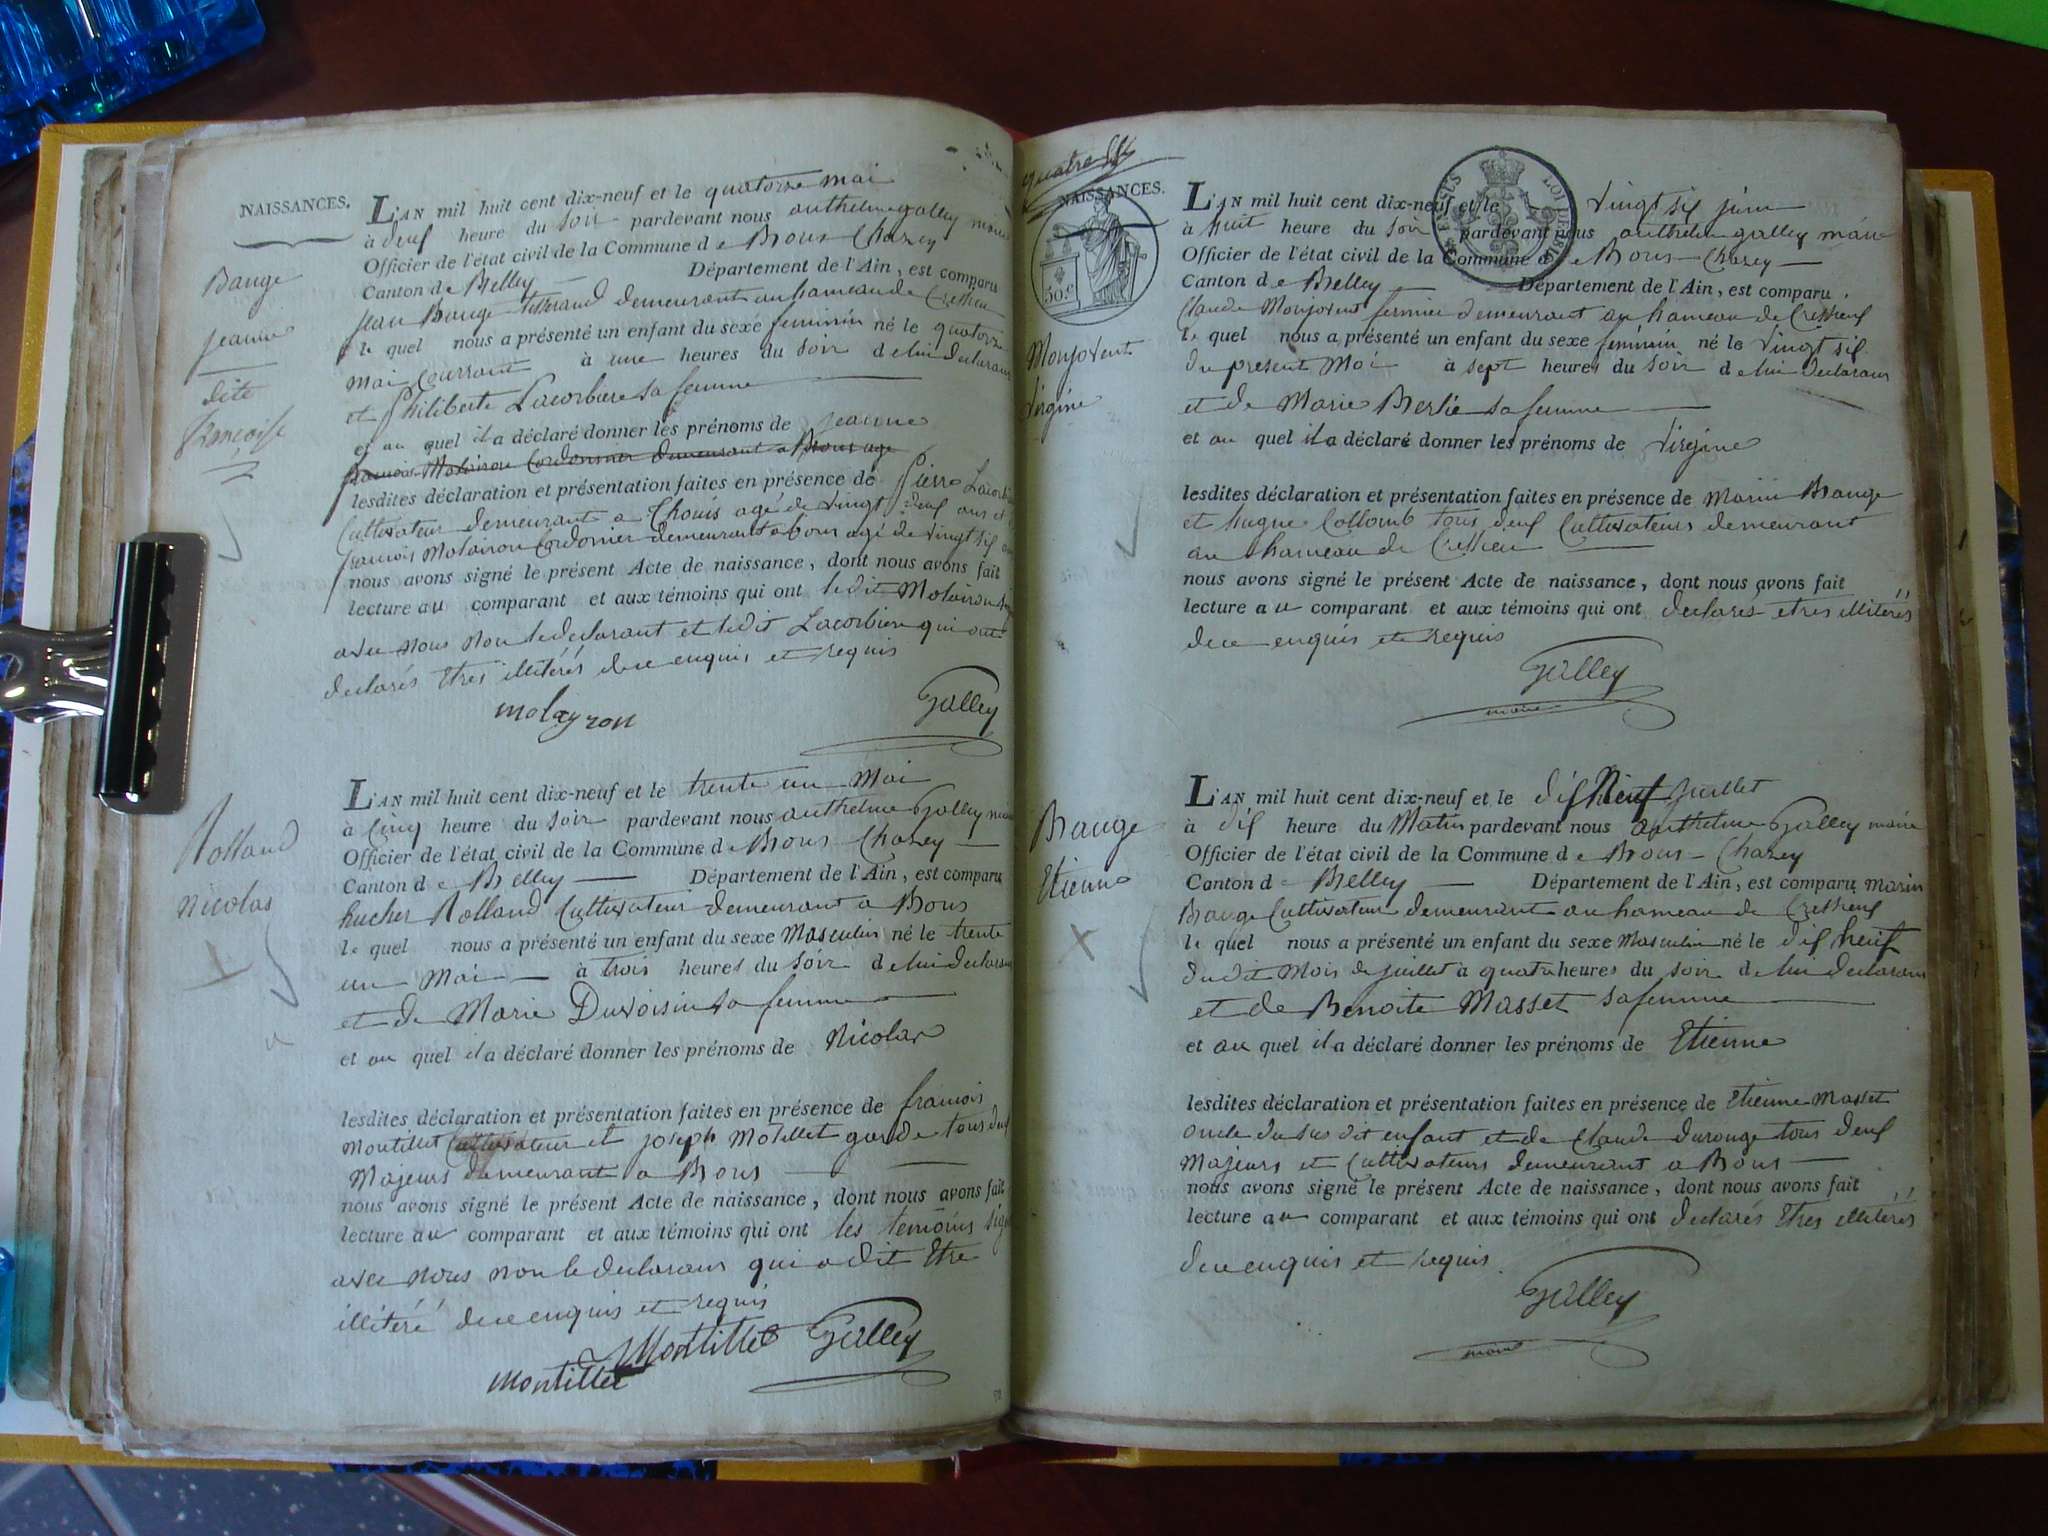 NAISSANCES.
Bauge
jeanne
dite
françoise
L'AN mil huit cent dix-neuf et le quatorze mai
à deux heure du soir pardevant nous anthelme galley maire
Officier de l'état civil de la Commune de Bons-Chazey
Canton de Belley Département de l'Ain, est comparu
jean Bauge tisserand demeurant au hameau de Cressieu
le quel nous a présenté un enfant du sexe feminin né le quatorze
mai courrant à une heures du soir de lui declarant
et philiberte Lacorbiere sa femme
et au quel il a déclaré donner les prénoms de jeanne
francois Molairon Cordonnier demeurant a Bons age
lesdites déclaration et présentation faites en présence de pierre Lacorbiere
Cultivateur demeurant a Thouis agé de vingt deux ans et
francois Molairon Cordonier demeurant a bons agé de vingt six ans
nous avons signé le présent Acte de naissance, dont nous avons fait
lecture au comparant et aux témoins qui ont ledit Molairon signé
avec nous non le declarant et ledit Lacorbiere qui ont
declarés etres illitérés de ce enquis et requis
molayron Galley
Rolland
Nicolas
L'AN mil huit cent dix-neuf et le trente un Mai
à Cinq heure du soir pardevant nous anthelme Galley maire
Officier de l'état civil de la Commune de Bons-Chazey
Canton de Belley Département de l'Ain, est comparu
hucher Rolland Cultivateur demeurant a Bons
le quel nous a présenté un enfant du sexe Masculin né le trente
un Mai à trois heures du soir de lui declarant
et de Marie Duvoisin sa femme
et au quel il a déclaré donner les prénoms de Nicolas
lesdites déclaration et présentation faites en présence de francois
Montillet Cultivateur et joseph Motillet garde tous deux
Majeurs demeurant a Bons
nous avons signé le présent Acte de naissance, dont nous avons fait
lecture au comparant et aux témoins qui ont les temoins signé
avec nous non le declarant qui a dit Etre
illitéré de ce enquis et requis
Montillet Galley
Montillet
quatre
NAISSANCES.
50.c
LOI DE
Monjovent
Virgine
L'AN mil huit cent dix-neuf et le vingt six juin
à huit heure du soir pardevant nous anthelme galley maire
Officier de l'état civil de la Commune de Bons-Chazey
Canton de Belley Département de l'Ain, est comparu
Claude Monjovent fermier demeurant au hameau de Cressieux
le quel nous a présenté un enfant du sexe feminin né le vingt six
du present Moi à sept heures du soir de lui declarant
et de Marie Berlié sa femme
et au quel il a déclaré donner les prénoms de Virgine
lesdites déclaration et présentation faites en présence de Marin Bauge
et hugue Collomb tous deux Cultivateurs demeurant
au hameau de Cressieu
nous avons signé le présent Acte de naissance, dont nous avons fait
lecture au comparant et aux témoins qui ont declarés etres illitérés
de ce enquis et requis
Galley
maire
Bauge
Etienne
L'AN mil huit cent dix-neuf et le dix Neuf juillet
à dix heure du Matin pardevant nous anthelme Galley maire
Officier de l'état civil de la Commune de Bons-Chazey
Canton de Belley Département de l'Ain, est comparu marin
Bauge Cultivateur demeurant au hameau de Cressieux
le quel nous a présenté un enfant du sexe Masculin né le dix neuf
dudit Mois de juillet à quatre heures du soir de lui declarant
et de Benoite Masset sa femme
et au quel il a déclaré donner les prénoms de Etienne
lesdites déclaration et présentation faites en présence de Etienne Masset
oncle du sus dit enfant et de Claude durouge tous deux
Majeurs et Cultivateurs demeurant a Bons
nous avons signé le présent Acte de naissance, dont nous avons fait
lecture au comparant et aux témoins qui ont declarés Etres illitérés
de ce enquis et requis.
Galley
maire